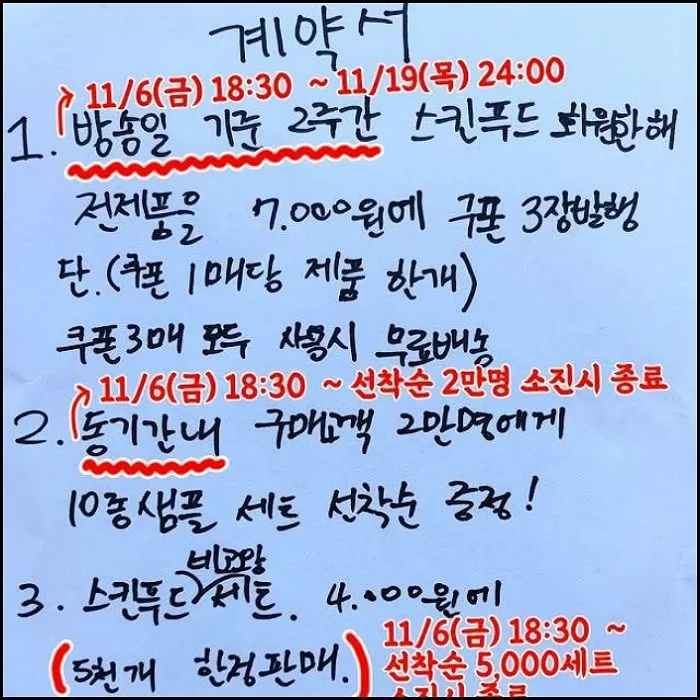 계약서
11/6(금) 18:30 ~ 11/19(목) 24:00
1. 방송일 기준 2주간 스킨푸드 회원한해
전제품을 7.000원에 쿠폰 3장발행
단.(쿠폰 1매당 제품 한개)
쿠폰3매 모두 사용시 무료배송
11/6(금) 18:30 ~ 선착순 2만명 소진시 종료
2. 동기간내 구매고객 2만명에게
10종샘플 세트 선착순 증정!
비고왕
3. 스킨푸드 세트. 4.000원에
(5천개 한정판매.)
11/6(금) 18:30 ~
선착순 5,000세트
소진시 종료